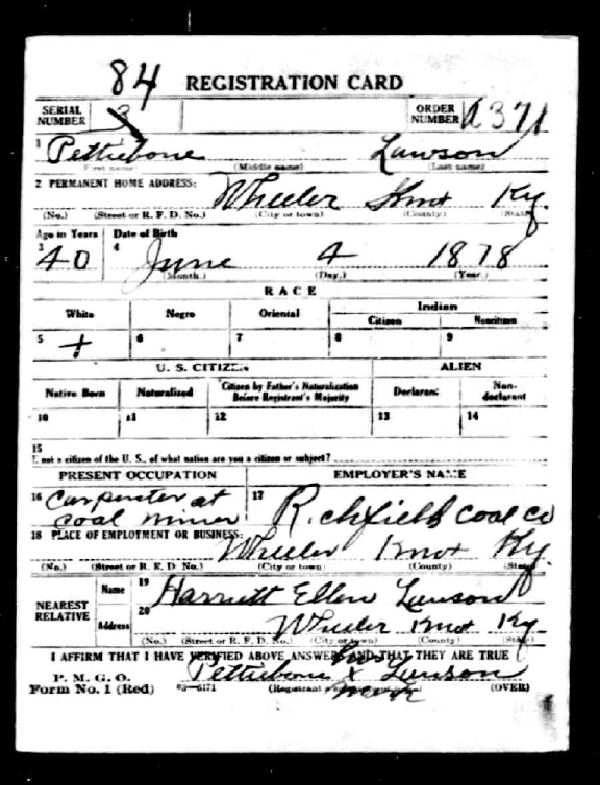 84 REGISTRATION CARD
SERIAL NUMBER 3 ORDER NUMBER A371
1 Pettiebone Lawson
(First name) (Middle name) (Last name)
2 PERMANENT HOME ADDRESS: Wheeler Knox Ky.
(No.) (Street or R. F. D. No.) (City or town) (County) (State)
Age in Years Date of Birth
3 40 4 June 4 1878
(Month.) (Day.) (Year.)
RACE
White Negro Oriental Indian
Citizen Noncitizen
5 + 6 7 8 9
U. S. CITIZEN ALIEN
Native Born Naturalized Citizen by Father's Naturalization Before Registrant's Majority Declarant Non-declarant
10 11 12 13 14
15
If not a citizen of the U. S., of what nation are you a citizen or subject?
PRESENT OCCUPATION EMPLOYER'S NAME
16 Carpenter at coal miner 17 Richfield Coal Co
18 PLACE OF EMPLOYMENT OR BUSINESS: Wheeler Knox Ky.
(No.) (Street or R. F. D. No.) (City or town) (County) (State)
NEAREST RELATIVE Name 19 Harriett Ellen Lawson
Address 20 Wheeler Knox Ky
(No.) (Street or R. F. D. No.) (City or town) (County) (State)
I AFFIRM THAT I HAVE VERIFIED ABOVE ANSWERS AND THAT THEY ARE TRUE
his
P. M. G. O. Pettiebone X Lawson
Form No. 1 (Red) 03—6171 (Registrant's signature or mark) (OVER)
mark